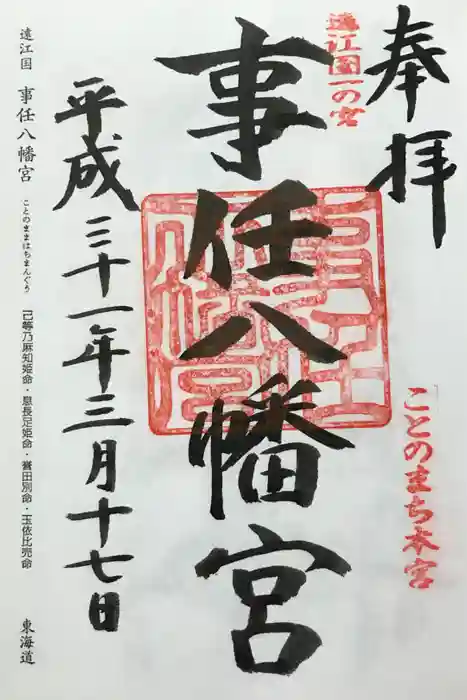 奉拝
遠江國一の宮
ことのまち本宮
事任八幡宮
平成三十一年三月十七日
遠江国 事任八幡宮 ことのままはちまんぐう 己等乃麻知姫命・息長足姫命・誉田別命・玉依比売命 東海道